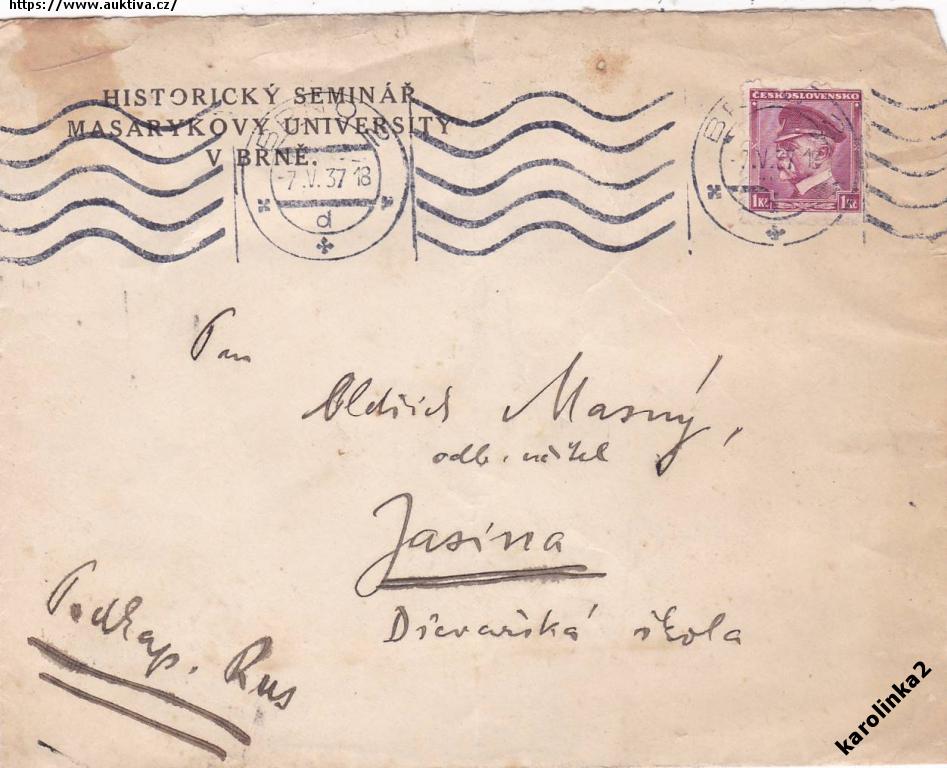 https://www.auktiva.cz/
HISTORICKÝ SEMINÁŘ
MASARYKOVY UNIVERSITY
V BRNĚ.
BRNO
-7.V.37 18
d
ČESKOSLOVENSKO
1Kč 1Kč
Pan
Oldřich Masný,
odb. učitel
Jasina
Dřevařská škola
Podkap. Rus
karolinka2